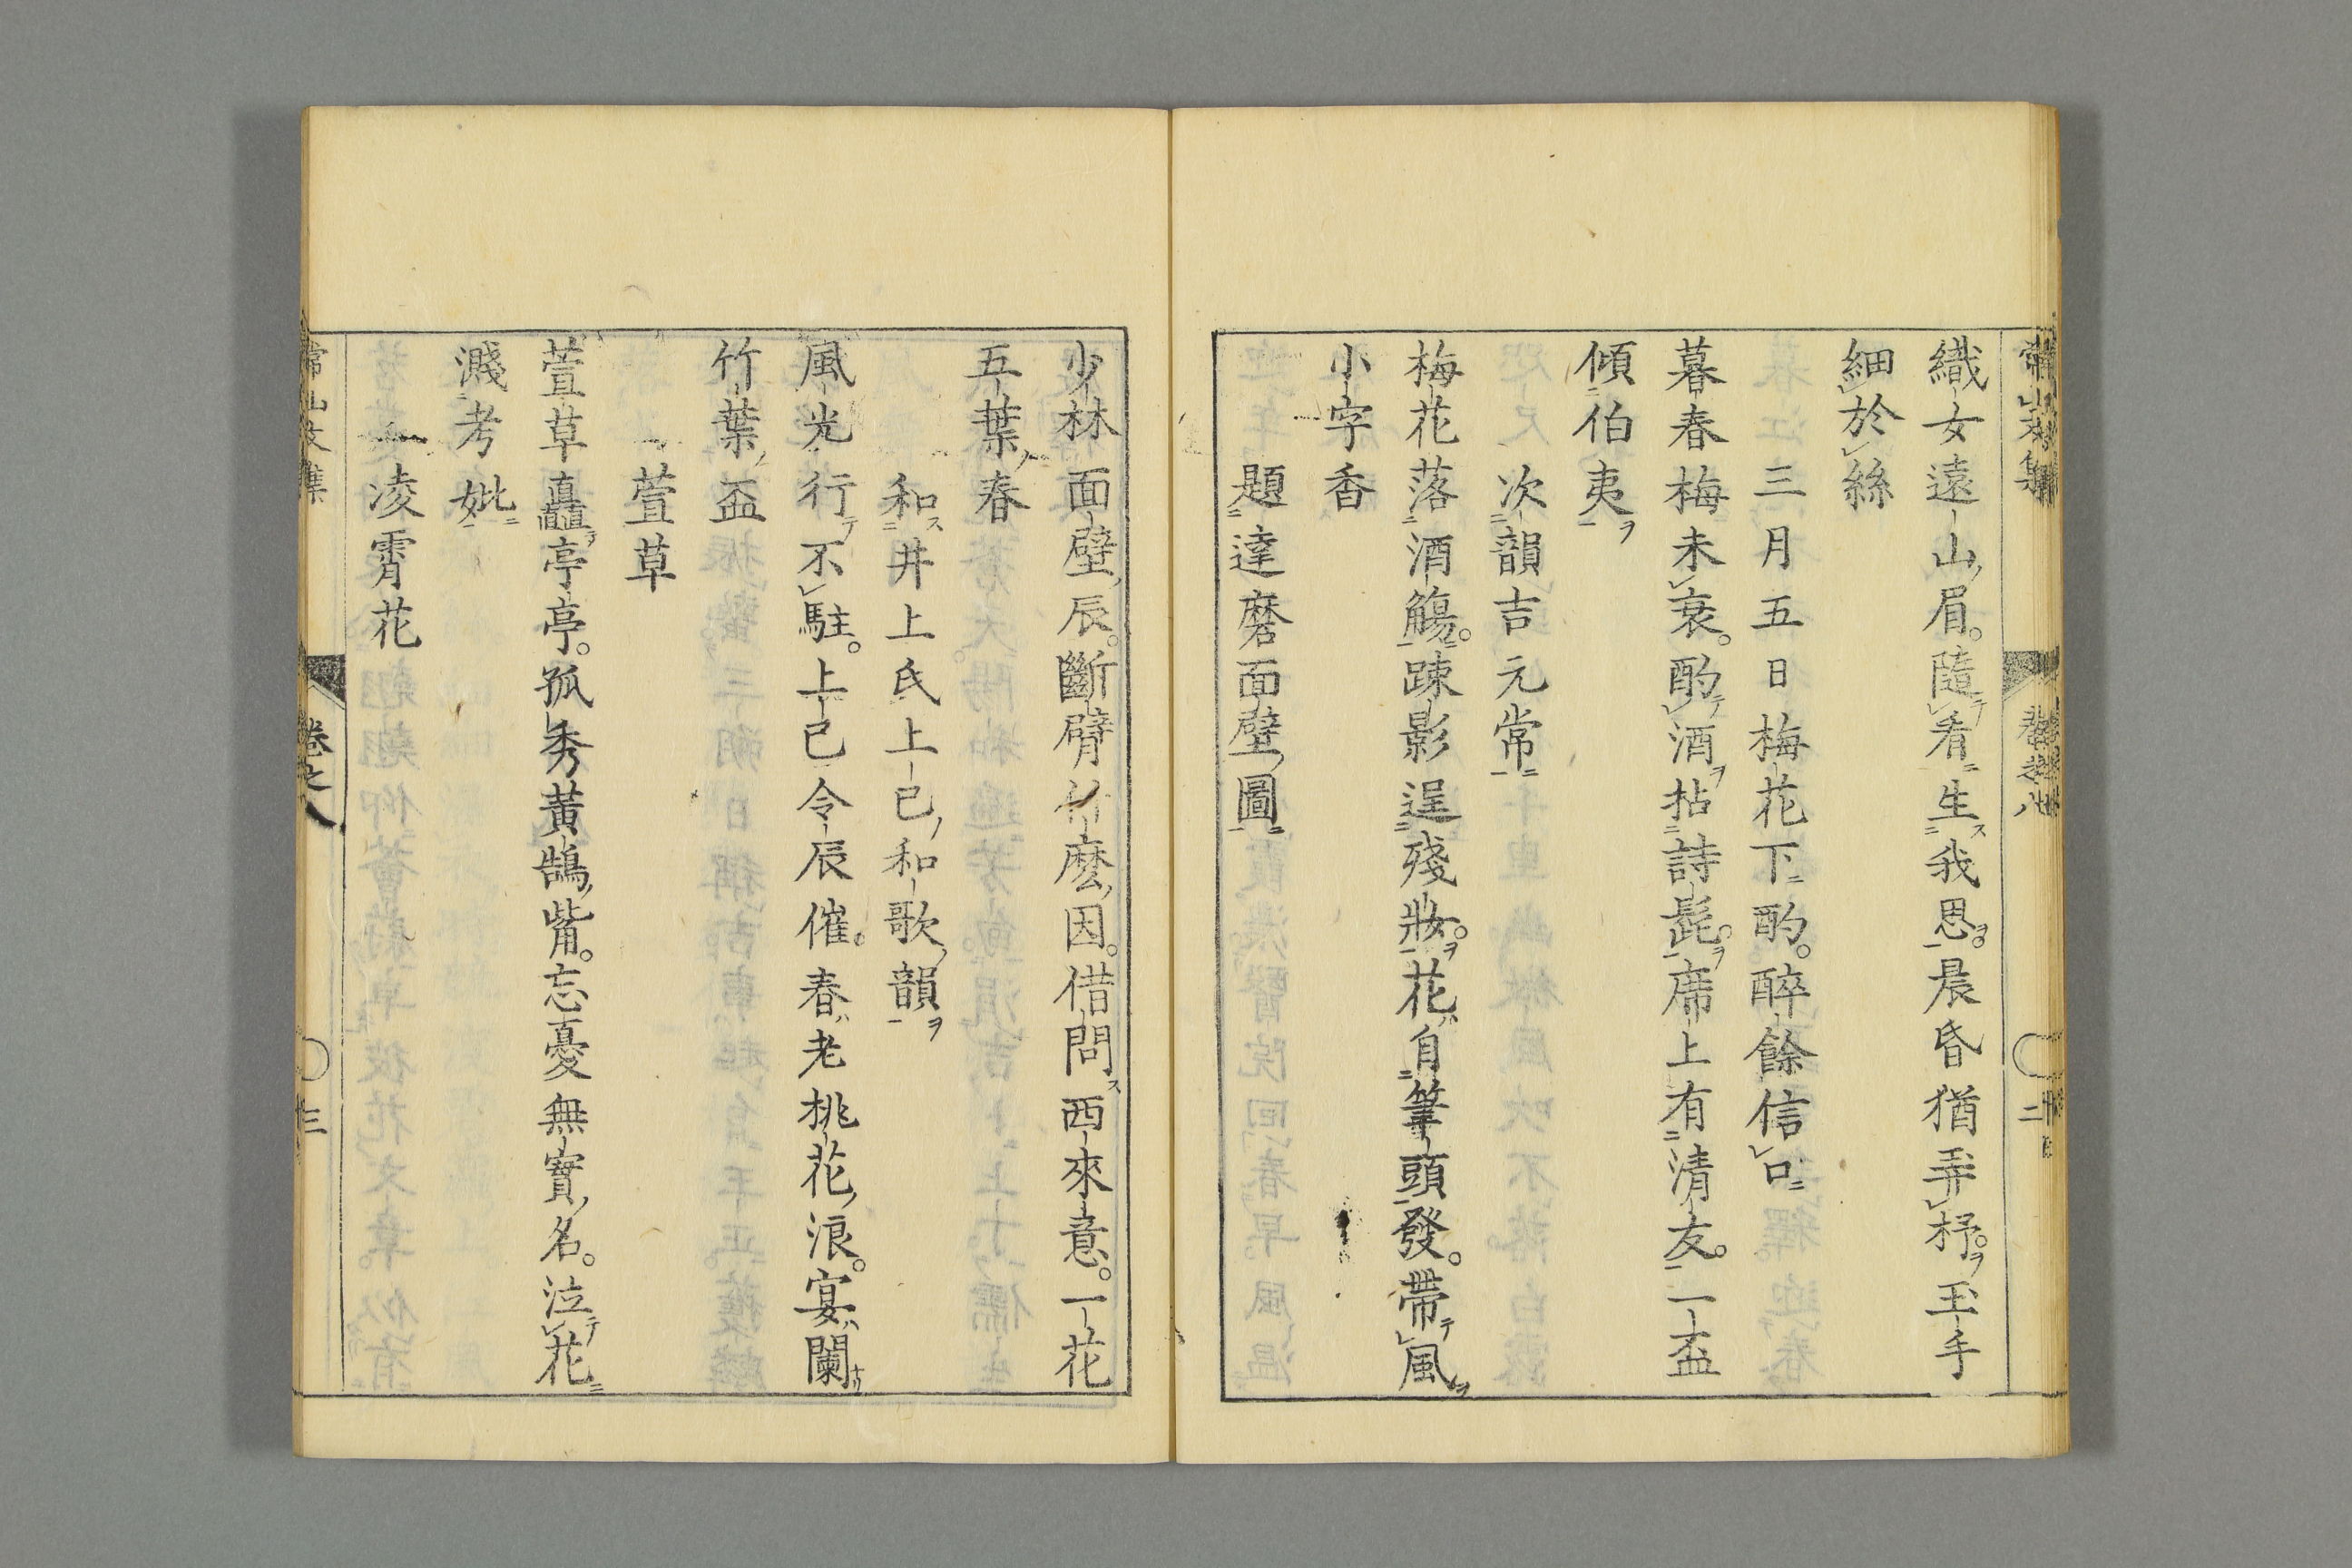 織女遠山眉。隨看生我恩。晨昏猶弄杼。玉手
細於絲
三月五日梅花下酌。醉餘信口
暮春梅未衰。酌酒拈詩髭。席上有清友。一盃
傾伯夷
次韻吉元常
梅花落酒觴。疎影逞殘妝。花自筆頭發。帶風
小字香
題達磨面壁圖
少林面壁辰。斷臂什麼因。借問西來意。一花
五葉春
和井上氏上巳和歌韻
風光行不駐。上巳令辰催。春老桃花浪。宴闌
竹葉盃
萱草
萱草矗亭亭。孤秀黃鵠觜。忘憂無實名。泣花
濺考妣
凌霄花
常山文集
卷之八
三